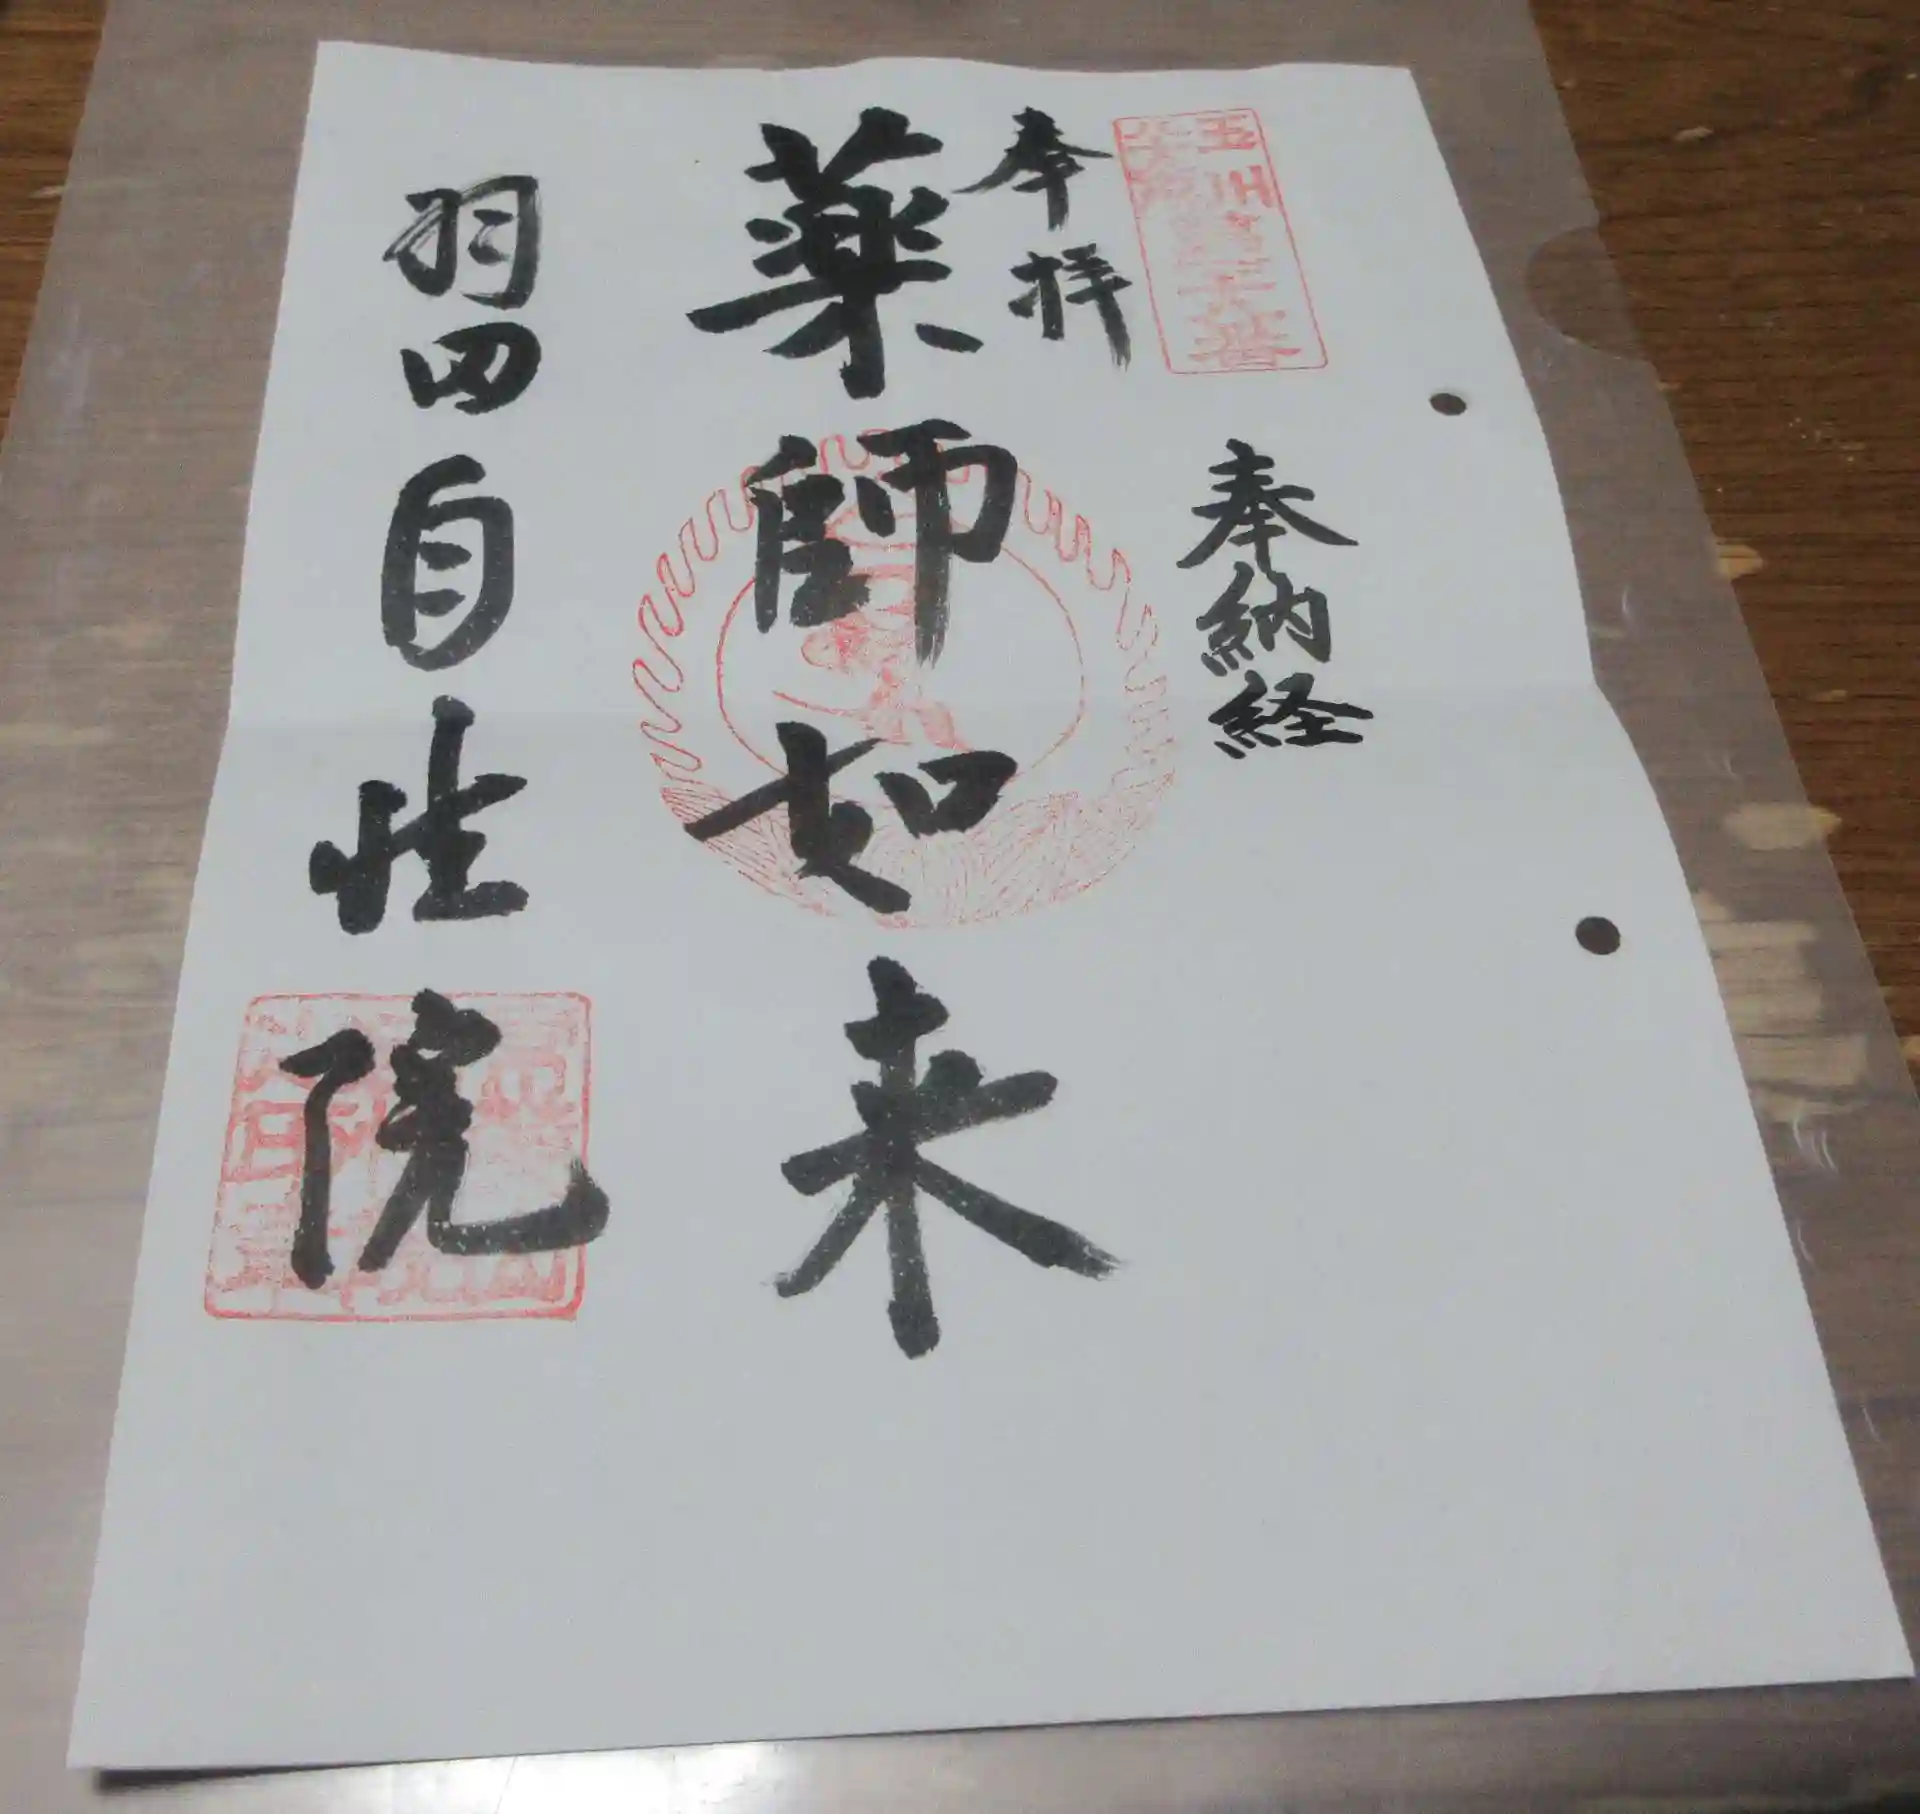 玉川
奉納経
奉拝
薬師如来
羽田自性院